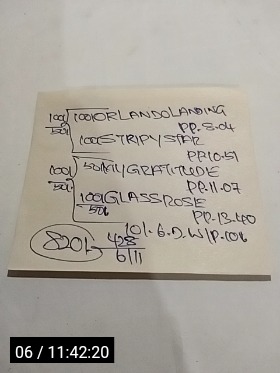 100/ 100/ ORLANDO LANDING
50/ PP.8.04
100/ STRIPY STAR
PP.10.51
100/ 50/ MY GRATITUDE
50/ PP.11.07
100/ GLASS ROSE
50/ PP.13.40
101.6.D.W/P.
820/. 428
6/11
06 / 11:42:20